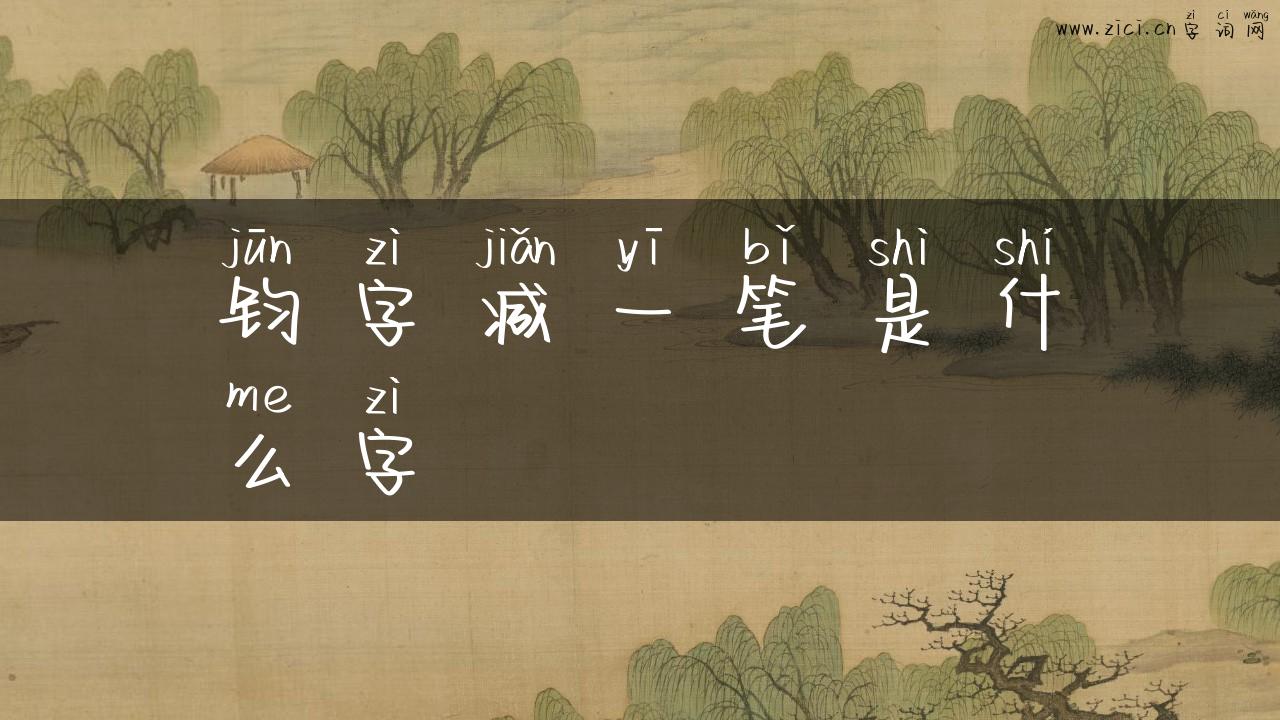 zì cí wǎng
www.zici.cn 字 词 网
jūn zì jiǎn yī bǐ shì shí
钧 字 减 一 笔 是 什
me zì
么 字